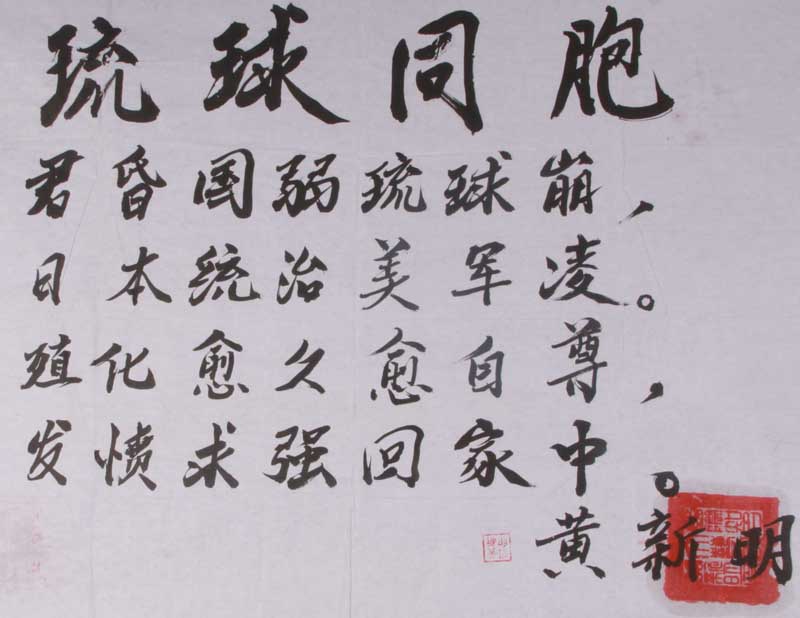 琉球同胞
君昏国弱琉球崩，
日本统治美军凌。
殖化愈久愈自尊，
发愤求强回家中。
黄新明